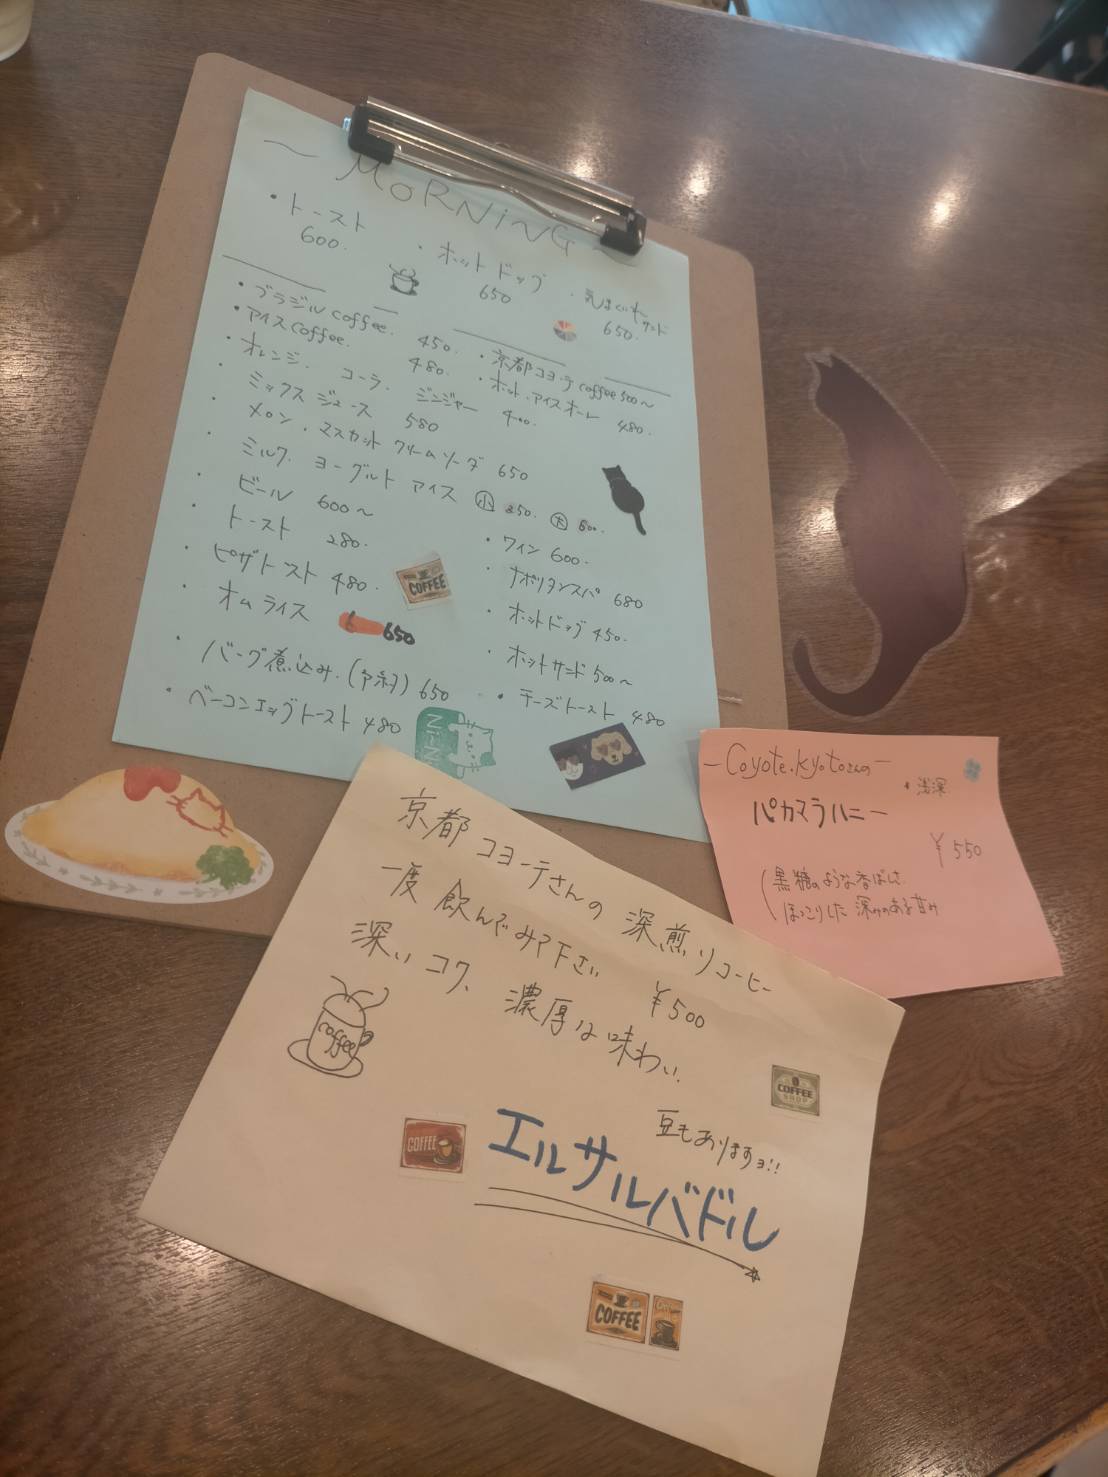 ~ MORNiNG ~
・トースト 600.
・ホットドッグ 650
・気まぐれサンド 650.
・ブラジル coffee. 450.
・京都コヨーテ coffee 500~
・アイス coffee. 480.
・ホット.アイスオーレ 480.
・オレンジ. コーラ. ジンジャー 400.
・ミックスジュース 580
・メロン.マスカット クリームソーダ 650
・ミルク. ヨーグルト アイス 小 250. 大 500.
・ビール 600~
・ワイン 600.
・トースト 280.
・ナポリタンスパ 680
・ピザトースト 480.
・ホットドッグ 450.
・オムライス 650
・ホットサンド 500~
・バーグ煮込み. 650
・チーズトースト 480
・ベーコンエッグトースト 480
COFFEE
— Coyote.kyotoさんの —
・浅深
パカマラハニー
¥550
黒糖のような香ばしさ
ほっこりした 深みのある甘み
京都コヨーテさんの 深煎りコーヒー
一度飲んでみて下さい ¥500
深いコク、濃厚な味わい.
coffee
豆もありますョ!!
エルサルバドル
COFFEE SHOP
COFFEE
COFFEE